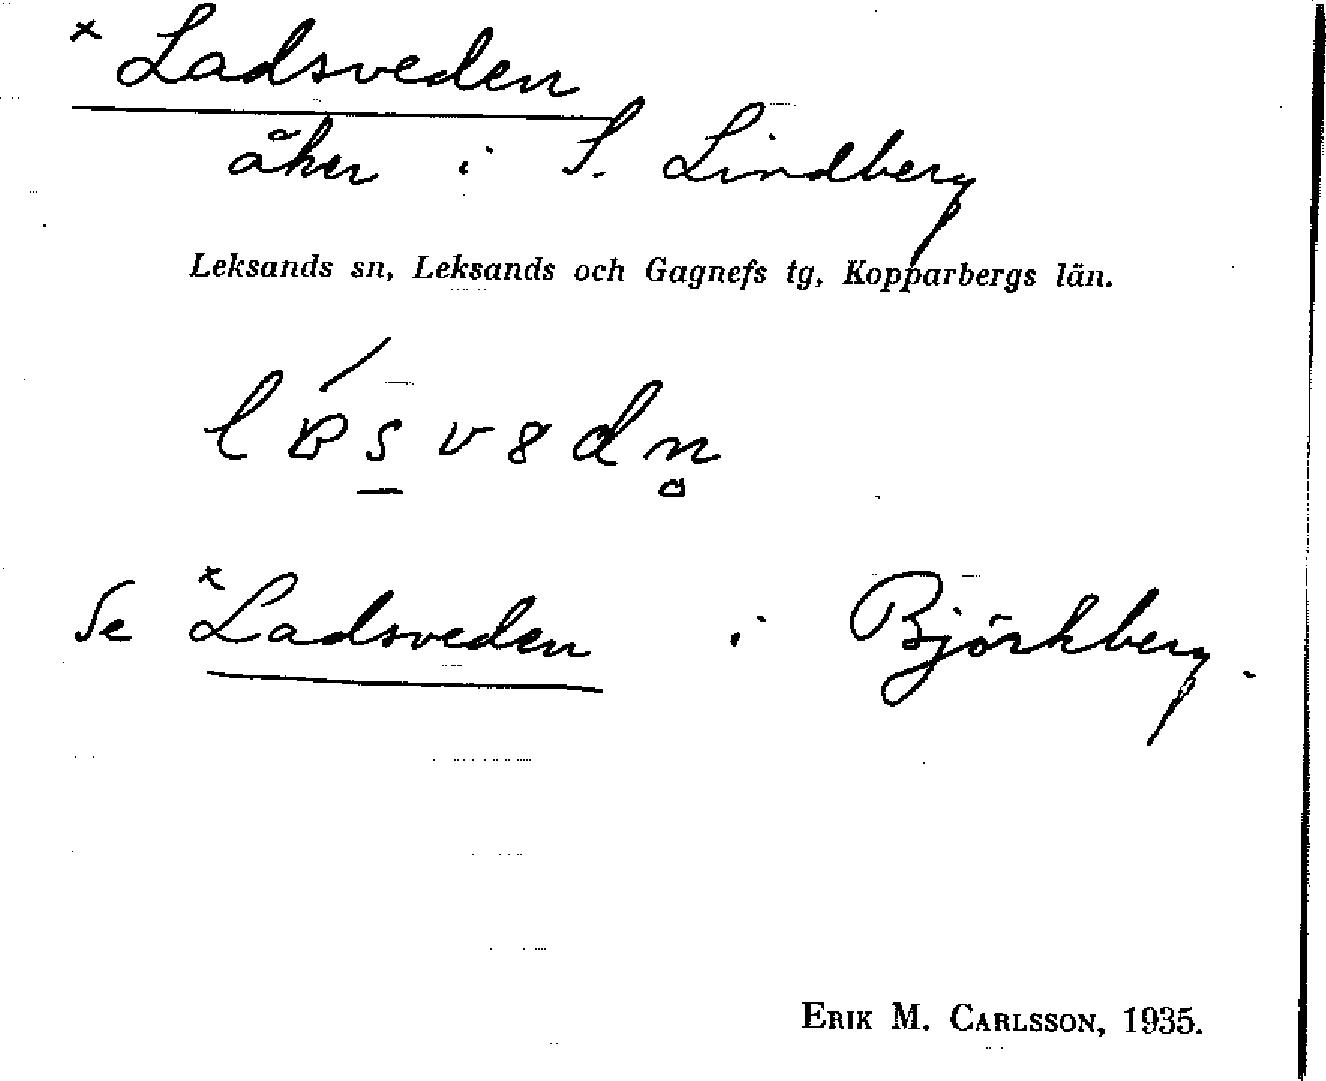 × Ladsveden
åker i S. Lindberg
Leksands sn, Leksands och Gagnefs tg, Kopparbergs län.
Se × Ladsveden i Björkberg.
ERIK M. CARLSSON, 1935.